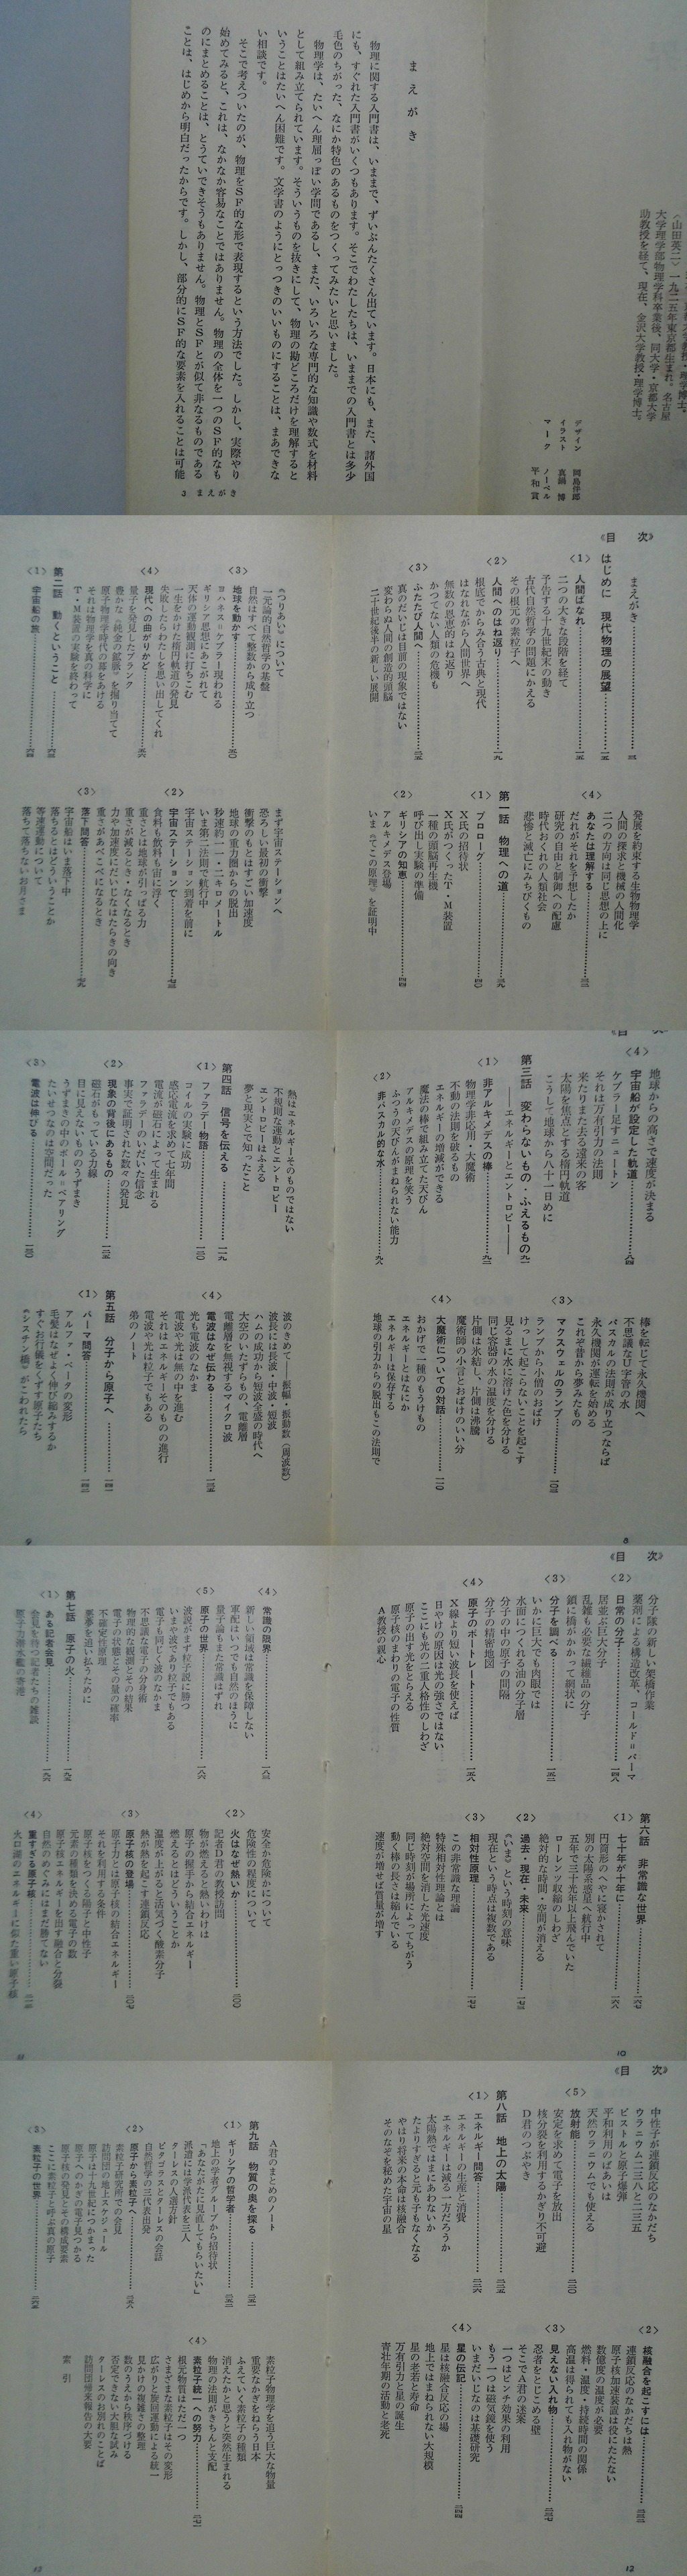 〈山田英二〉一九二五年東京都生まれ。名古屋
大学理学部物理学科卒業後、同大学・京都大学
助教授を経て、現在、金沢大学教授・理学博士。
デザイン
イラスト 真鍋 博
マーク ノーベル平和賞
まえがき
物理に関する入門書は、いままで、ずいぶんたくさん出ています。日本にも、また、諸外国
にも、すぐれた入門書がいくつもあります。そこでわたしたちは、いままでの入門書とは多少
毛色のちがった、なにか特色のあるものをつくってみたいと思いました。
物理学は、たいへん理屈っぽい学問であるし、また、いろいろな専門的な知識や数式を材料
として組み立てられています。そういうものを抜きにして、物理の勘どころだけを理解すると
いうことはたいへん困難です。文学書のようにとっつきのいいものにすることは、まあできな
い相談です。
そこで考えついたのが、物理をSF的な形で表現するという方法でした。しかし、実際やり
始めてみると、これは、なかなか容易なことではありません。物理の全体を一つのSF的なも
のにまとめることは、とうていできそうもありません。物理とSFとが似て非なるものである
ことは、はじめから明白だったからです。しかし、部分的にSF的な要素を入れることは可能
3 まえがき
《目 次》
まえがき
はじめに 現代物理の展望
〈1〉 人間ばなれ
二つの大きな段階を経て
予告する十九世紀末の動き
古代自然哲学の問題にかえる
その根元の素粒子へ
〈2〉 人間へのはね返り
根底でからみ合う古典と現代
はなれながら人間世界へ
無数の恩恵的はね返り
かつてない人類の危機も
〈3〉 ふたたび人間へ
真のだいじは目前の現象ではない
変わらぬ人間の創造的頭脳
二十世紀後半の新しい展開
発展を約束する生物物理学
人間の探求と機械の人間化
二つの方向は同じ思想の上に
〈4〉 あなたは理解する
だれがそれを予想したか
研究の自由と制御への配慮
時代おくれの人類社会
悲惨と滅亡にみちびくもの
第一話 物理への道
〈1〉 プロローグ
X氏の招待状
X氏がつくったT・M装置
一種の頭脳再生機
呼び出し実験の準備
〈2〉 ギリシアの知恵
アルキメデス登場
いま《てこの原理》を証明中
《つりあい》について
一元論的自然哲学の基盤
自然はすべて整数から成り立つ
〈3〉 地球を動かす
ヨハネス=ケプラー現われる
ギリシア思想にあこがれて
天体の運動観測に打ちこむ
一生をかけた楕円軌道の発見
失敗したらわたしを思い出してくれ
〈4〉 現代への曲がりかど
量子を発見したプランク
豊かな《純金の鉱脈》を掘り当てて
原子物理学時代の幕をあける
それは物理学を真の科学に
T・M装置の実験を終わって
第二話 動くということ
〈1〉 宇宙船の旅
まず宇宙ステーションへ
恐ろしい最初の衝撃
衝撃のもとはすごい加速度
地球の重力圏からの脱出
秒速約一一・二キロメートル
いま第二法則で航行中
宇宙ステーション到着を前に
〈2〉 宇宙ステーションで
食料も飲料も宙に浮く
重さとは地球が引っぱる力
重さが減るとき・なくなるとき
力や加速度にだいじなはたらきの向き
重さがあべこべになるとき
〈3〉 落下問答
宇宙船はいま落下中
落ちるとはどういうことか
等速運動について
落ちて落ちないお月さま
《目 次》
地球からの高さで速度が決まる
〈4〉 宇宙船が設定した軌道
ケプラー足すニュートン
それは万有引力の法則
来たりまた去る遠来の客
太陽を焦点とする楕円軌道
こうして地球から八十一日めに
第三話 変わらないもの・ふえるもの
――エネルギーとエントロピー――
〈1〉 非アルキメデスの棒
物理学非応用・大魔術
不動の法則を破るもの
エネルギーの増減ができる
魔法の棒で組み立てた天びん
アルキメデスの原理を笑う
ふつうの天びんがまねられない能力
〈2〉 非パスカル的な水
棒を転じて永久機関へ
不思議なU字管の水
パスカルの法則が成り立つならば
永久機関が運転を始める
これぞ昔から夢みたもの
〈3〉 マクスウェルのランプ
ランプから小僧のおばけ
けっして起こらないことを起こす
見るまに水に溶けた色を分ける
同じ容器の水の温度を分ける
片側は氷結し、片側は沸騰
魔術師の小言とおばけのいい分
〈4〉 大魔術についての対話
おかげで一種のもうけもの
エネルギーとはなにか
エネルギーは保存する
地球の引力からの脱出もこの法則で
8
熱はエネルギーそのものではない
不規則な運動とエントロピー
エントロピーはふえる
夢と現実とで知ったこと
第四話 信号を伝える
〈1〉 ファラデー物語
コイルの実験に成功
感応電流を求めて七年間
電流が磁石によって生まれる
ファラデーのいだいた信念
事実で証明された数々の発見
〈2〉 現象の背後にあるもの
磁石がもっている力線
目に見えないもののうずまき
うずまきの中のボール=ベアリング
たいせつなのは空間だった
〈3〉 電波は伸びる
波のきめて――振幅・振動数（周波数）
波長には長波・中波・短波
ハムの成功から短波全盛の時代へ
大空のいたずらもの、電離層
電離層を無視するマイクロ波
〈4〉 電波はなぜ伝わる
光も電波のなかま
電波や光は無の中を進む
それはエネルギーそのものの進行
電波や光は粒子でもある
弟のノート
第五話 分子から原子へ
〈1〉 パーマ問答
アルファ・ベータの変形
毛髪はなぜよく伸び縮みするか
すぐお行儀をくずす原子たち
《システン橋》がこわれたら
9
《目 次》
分子隊の新しい架橋作業
薬剤による構造改革、コールド=パーマ
〈2〉 日常の分子
居並ぶ巨大分子
乱雑も必要な繊維品の分子
鎖に橋がかかって網状に
〈3〉 分子を調べる
いかに巨大でも肉眼では
水面につくれる油の分子層
分子の中の原子の間隔
分子の精密地図
〈4〉 原子のポートレート
X線より短い波長を使えば
日やけの原因は光の強さではない
ここにも光の二重人格性のしわざ
原子の出す光をとらえる
原子核のまわりの電子の性質
A教授の親心
第六話 非常識な世界
〈1〉 七十年が十年に
円筒形のへやに寝かされて
別の太陽系惑星へ航行中
五年で三十光年以上飛んでいた
ローレンツ収縮のしわざ
絶対的な時間・空間が消える
〈2〉 過去・現在・未来
《いま》という時刻の意味
現在という時点は複数である
〈3〉 相対性原理
この非常識な理論
特殊相対性理論とは
絶対空間を消した光速度
同じ時刻が場所によってちがう
動く棒の長さは縮んでいる
速度が増せば質量が増す
10
〈4〉 常識の限界
新しい領域は常識を保障しない
軍配はいつでも自然のほうに
量子論もまた常識はずれ
〈5〉 原子の世界
波説がまず粒子説に勝つ
いまや波であり粒子でもある
電子も同じく波のなかま
不思議な電子の分身術
物理的な観測とその結果
電子の状態とその量の確率
不確定性原理
悪夢を追い払うために
第七話 原子の火
〈1〉 ある記者会見
会見を待つ記者たちの雑談
原子力潜水艦の寄港
安全か危険かについて
危険性の程度について
記者D君の教授訪問
〈2〉 火はなぜ熱いか
物が燃えると熱いわけは
原子の握手から結合エネルギー
燃えるとはどういうことか
温度が上がると活気づく酸素分子
熱が熱を起こす連鎖反応
〈3〉 原子核の登場
原子力とは原子核の結合エネルギー
それを利用する条件
原子核をつくる陽子と中性子
元素の種類を決める電子の数
原子核エネルギーを出す融合と分裂
自然のめぐみにはまだ勝てない
〈4〉 重すぎる原子核
火口湖のエネルギーに似た重い原子核
11
《目 次》
中性子が連鎖反応のなかだち
ウラニウム二三八と二三五
ピストルと原子爆弾
平和利用のばあいは
天然ウラニウムでも使える
〈5〉 放射能
安定を求めて電子を放出
核分裂を利用するかぎり不可避
D君のつぶやき
第八話 地上の太陽
〈1〉 エネルギー問答
エネルギーの生産と消費
エネルギーは減る一方だろうか
太陽熱ではまにあわないか
たよりすぎると元も子もなくなる
やはり将来の本命は核融合
そのなぞを秘めた宇宙の星
〈2〉 核融合を起こすには
連鎖反応のなかだちは熱
原子核加速装置は役にたたない
数億度の温度が必要
燃料・温度・持続時間の関係
高温は得られても入れ物がない
〈3〉 見えない入れ物
忍者をとじこめる壁
そこでA君の迷案
一つはピンチ効果の利用
もう一つは磁気鏡を使う
いまだいじなのは基礎研究
〈4〉 星の伝記
星は核融合反応の場
地上ではまねられない大規模
星の老若と寿命
万有引力と星の誕生
青壮年期の活動と老死
12
A君のまとめのノート
第九話 物質の奥を探る
〈1〉 ギリシアの哲学者
地上の学者グループから招待状
「あなたがたに見直してもらいたい」
派遣には学派代表を三人
ターレスの人選方針
ピタゴラスとターレスの会話
自然哲学の三代表出発
〈2〉 原子から素粒子へ
素粒子研究所での会見
訪問団の地上スケジュール
原子は十九世紀につかまった
原子へのかぎの電子見つかる
原子核の発見とその構成要素
ここに素粒子と呼ぶ真の原子
〈3〉 素粒子の世界
素粒子物理学を追う巨大な物量
重要なかぎをねらう日本
ふえていく素粒子の種類
消えたかと思うと突然生まれる
物理の法則がきちんと支配
〈4〉 素粒子統一への努力
根元物質はただ一つ
さまざまな素粒子はその変形
広がりと旋回運動による統一
見かけの複雑さの整理
数のうえから秩序づける
否定できない大胆な試み
ターレスのお別れのことば
訪問団帰来報告の大要
索 引